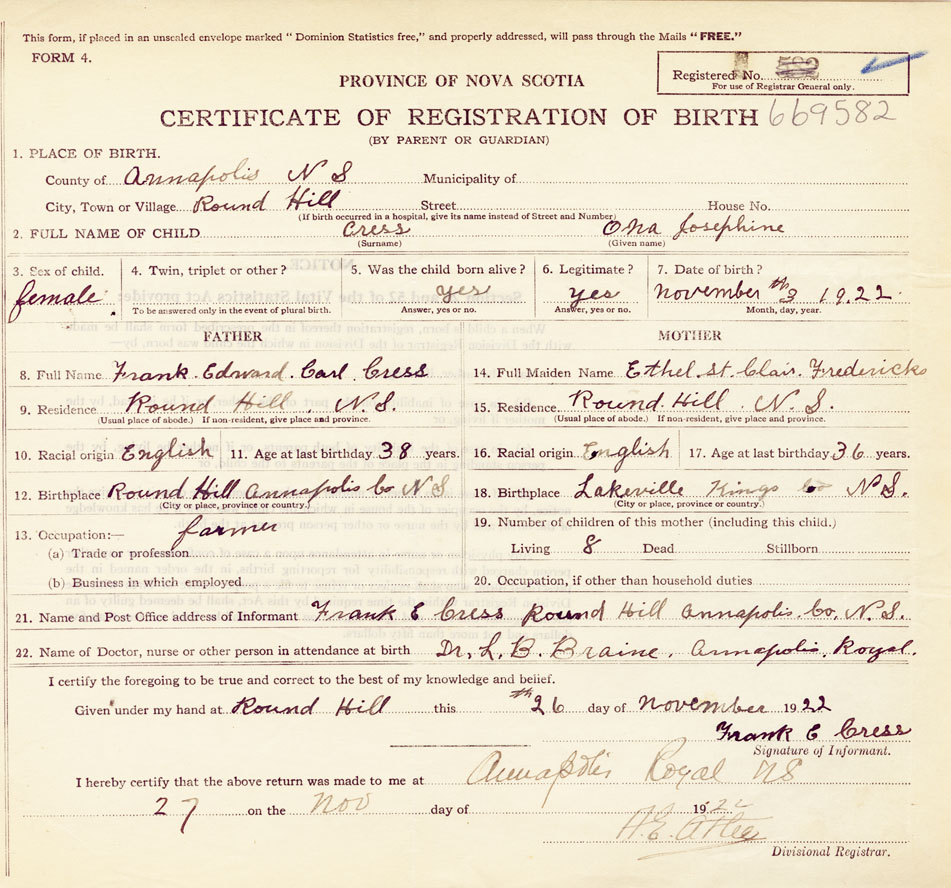 This form, if placed in an unsealed envelope marked "Dominion Statistics free," and properly addressed, will pass through the Mails "FREE."
FORM 4.
Registered No. 582
For use of Registrar General only.
PROVINCE OF NOVA SCOTIA
CERTIFICATE OF REGISTRATION OF BIRTH 669582
(BY PARENT OR GUARDIAN)
1. PLACE OF BIRTH.
County of Annapolis N S Municipality of
City, Town or Village Round Hill Street House No.
(If birth occurred in a hospital, give its name instead of Street and Number)
2. FULL NAME OF CHILD Cress Ona Josephine
(Surname) (Given name)
3. Sex of child. 4. Twin, triplet or other? 5. Was the child born alive? 6. Legitimate? 7. Date of birth?
female yes yes November 3th 1922
To be answered only in the event of plural birth. Answer, yes or no. Answer, yes or no. Month, day, year.
FATHER MOTHER
8. Full Name Frank Edward Carl Cress 14. Full Maiden Name Ethel St Clair Fredericks
9. Residence Round Hill, N.S. 15. Residence Round Hill N.S.
(Usual place of abode.) If non-resident, give place and province. (Usual place of abode.) If non-resident, give place and province.
10. Racial origin English 11. Age at last birthday 38 years. 16. Racial origin English 17. Age at last birthday 36 years.
12. Birthplace Round Hill Annapolis Co N S 18. Birthplace Lakeville Kings Co N S.
(City or place, province or country.) (City or place, province or country.)
13. Occupation:— farmer 19. Number of children of this mother (including this child.)
(a) Trade or profession Living 8 Dead Stillborn
(b) Business in which employed 20. Occupation, if other than household duties
21. Name and Post Office address of Informant Frank E Cress Round Hill Annapolis Co, N.S.
22. Name of Doctor, nurse or other person in attendance at birth Dr. L. B. Braine, Annapolis Royal.
I certify the foregoing to be true and correct to the best of my knowledge and belief.
Given under my hand at Round Hill this 26th day of November 1922
Frank E Cress
Signature of Informant.
I hereby certify that the above return was made to me at Annapolis Royal NS
27 on the Nov day of 1922
H.E.
Divisional Registrar.